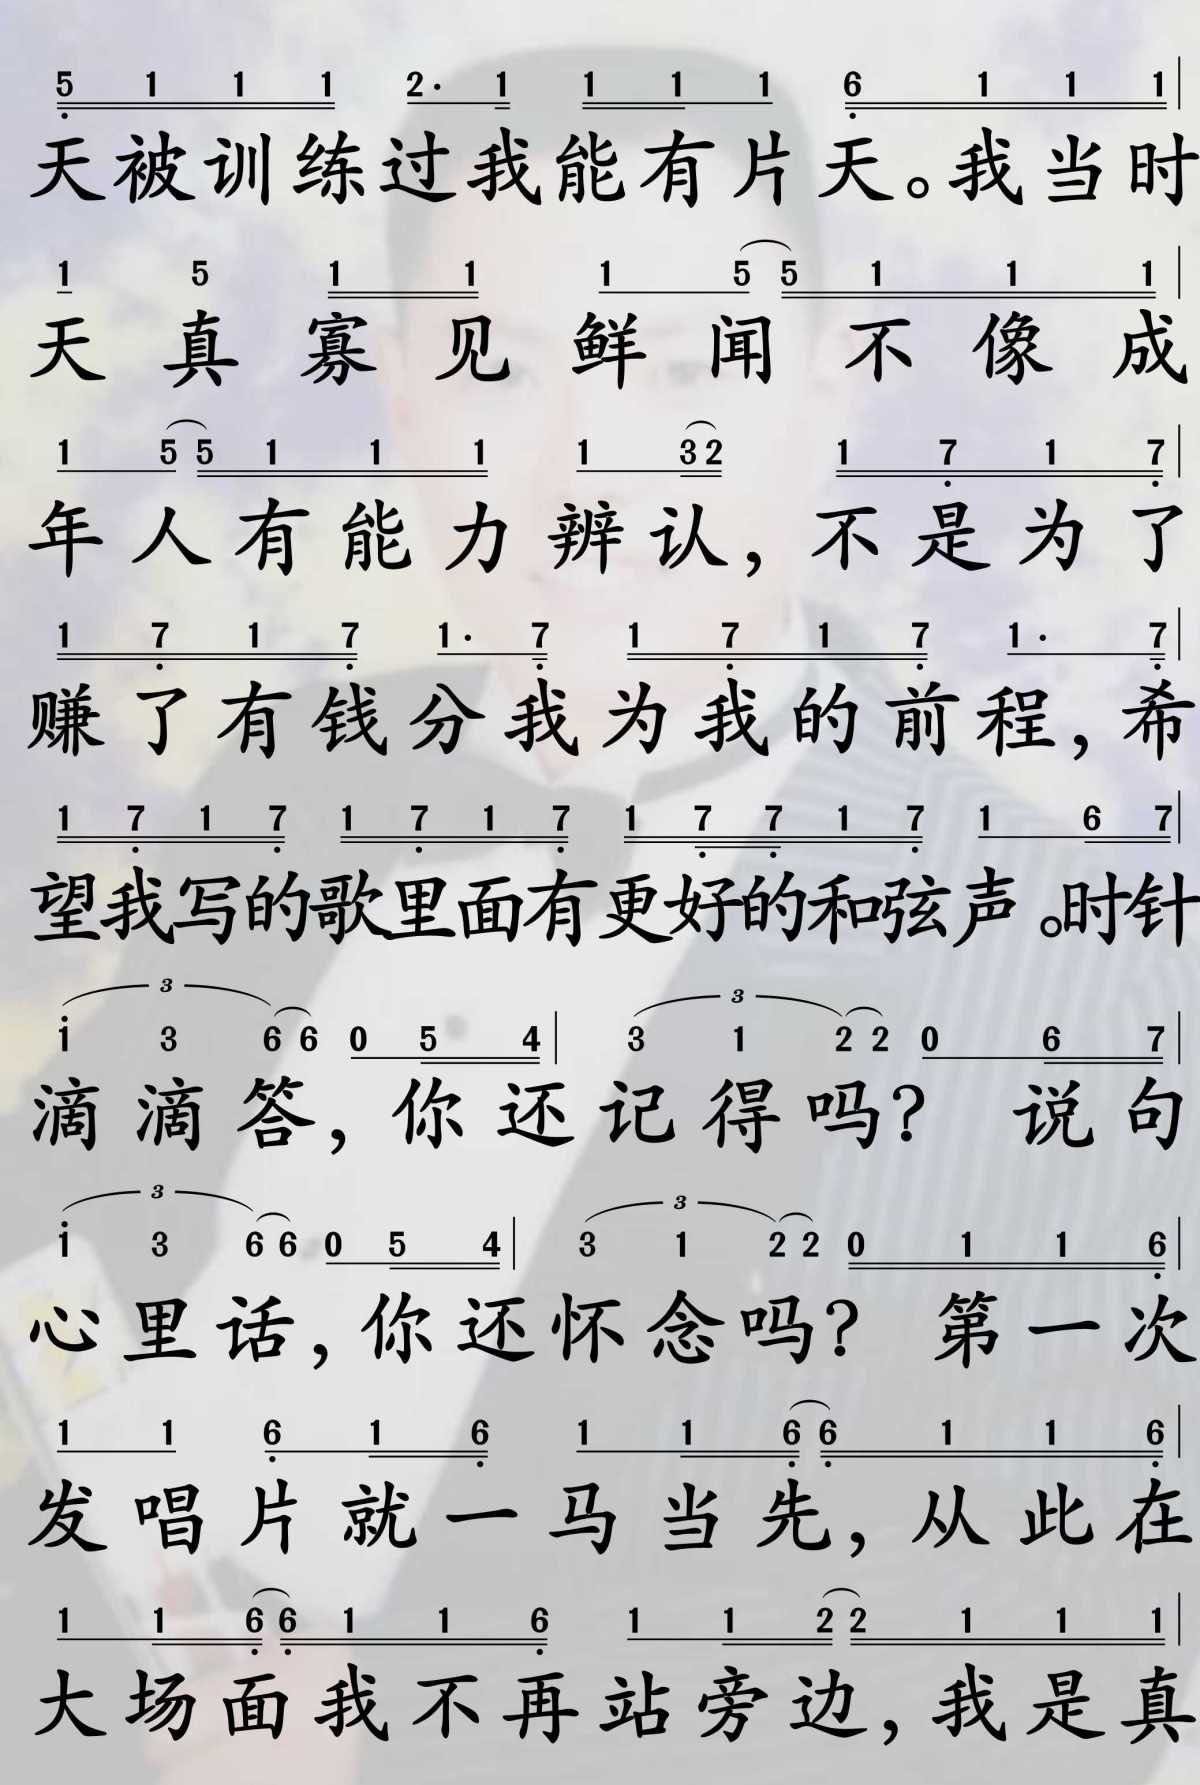 5 1 1 1 2· 1 1 1 1 6 1 1 1
天被训练过我能有片天。我当时
1 5 1 1 1 5 5 1 1 1
天真寡见鲜闻不像成
1 5 5 1 1 1 1 3 2 1 7 1 7
年人有能力辨认,不是为了
1 7 1 7 1· 7 1 7 1 7 1· 7
赚了有钱分我为我的前程,希
1 7 1 7 1 7 1 7 1 7 7 1 7 1 6 7
望我写的歌里面有更好的和弦声。时针
3 3
1 3 6 6 0 5 4 3 1 2 2 0 6 7
滴滴答,你还记得吗? 说句
3 3
1 3 6 6 0 5 4 3 1 2 2 0 1 1 6
心里话,你还怀念吗? 第一次
1 1 6 1 6 1 1 6 6 1 1 6
发唱片就一马当先,从此在
1 1 6 6 1 1 6 1 1 2 2 1 1 1
大场面我不再站旁边,我是真